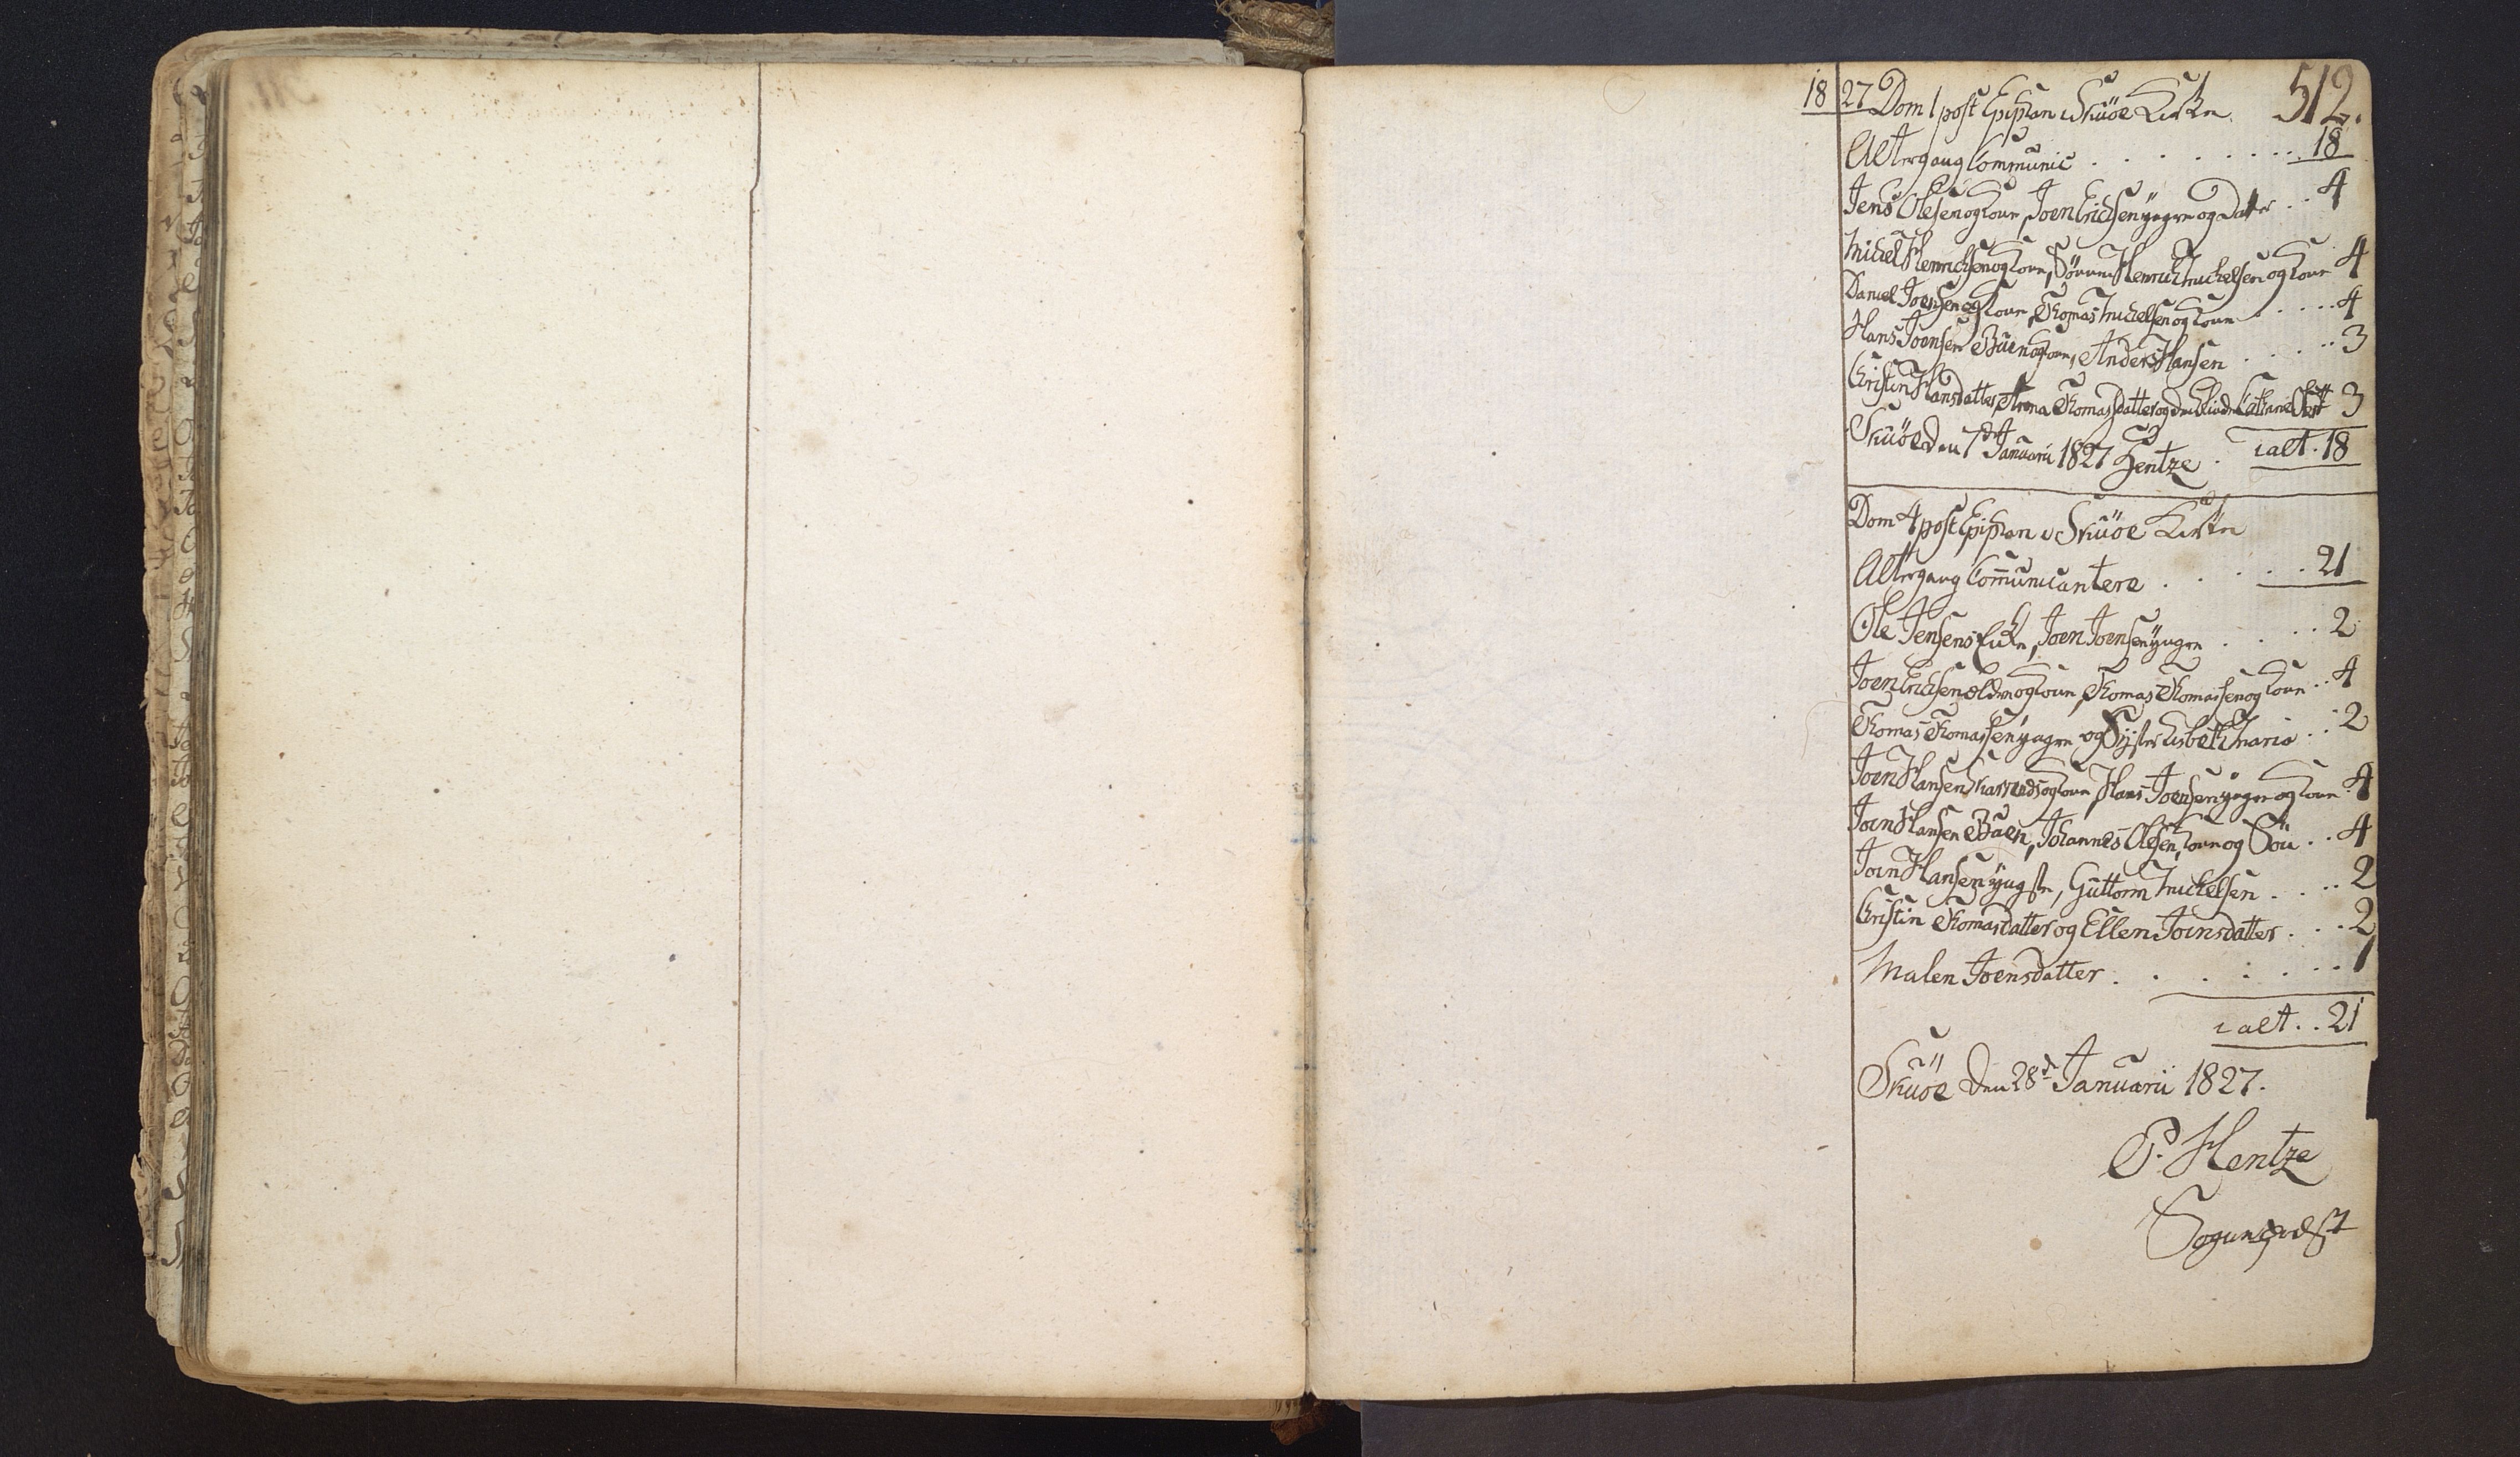 512.
1827 Dom 1 post Epiphan i Skuöe Kirke
Altergang Communic . . . . . . . . . 18
Jens Olesen og Kone, Joen Erichsen yngre og Datter . . 4
Michel Henrichsen og Kone, Henrich Michelsen og Kone 4
Daniel Joensen og Kone, Thomas Michelsen og Kone . . . . . 4
Hans Joensen Büen og Kone, Anders Hansen . . . . . 3
Christin Hansdatter, Anna Thomasdatter og 3
Skuöe den 7de Januarii 1827 Hentze . ialt . 18
Dom 4 post Epiphan i Skuöe Kirke
Altergang Com̄unicantere . . . . . 21
Ole Jensens Enke, Joen Joensen yngre . . . . 2
Joen Erichsen ældre og Kone, Thomas Thomassen og Kone . . 4
Thomas Thomassen yngre og Syster Lisbeth Maria . . . 2
Joen Hansen og Kone, Hans Joensen yngre og Kone . 4
Joen Hansen Büen, Johannes Olesen, Kone og Sön . . 4
Joen Hansen yngste, Guttorm Michelsen . . . . 2
Christin Thomasdatter og Ellen Joensdatter . . . 2
Malen Joensdatter . . . . . . . 1
i alt . . 21
Skuöe den 28de Januarii 1827.
P. Hentze
Sognepræst